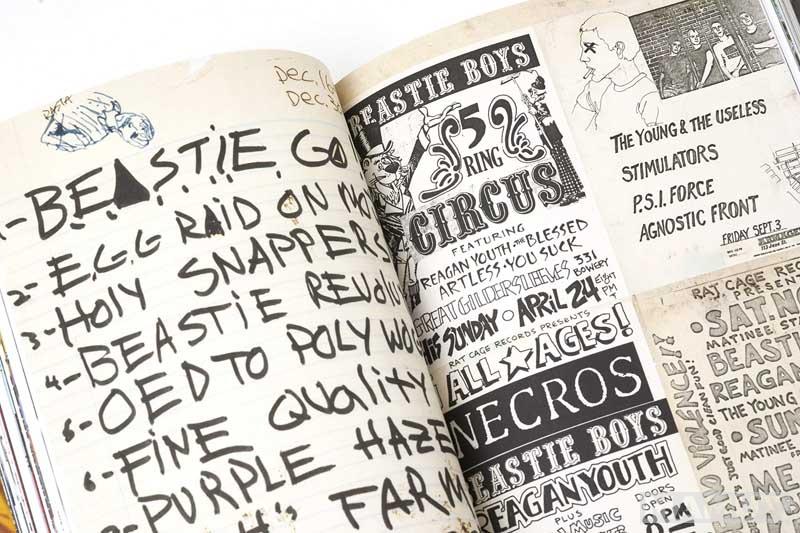 DATA
Dec. 16
Dec. 3
1-BEASTiE GO
2- E.G.G RAiD ON MO
3-HOlY SNAPPERS
4-BEASTiE REVOLU
5-OED TO POLYWO
6-FiNE QUALiTY
PURPLE HAZE
FARM
BEASTIE BOYS
5
RING
CIRCUS
FEATURING
REAGAN YOUTH·THE BLESSED
ARTLESS·YOU SUCK
GREAT GILDERSLEEVES 331 BOWERY
EIGHT PM
THIS SUNDAY·APRIL 24
RAT CAGE RECORDS PRESENTS
ALL ★ AGES!
NECROS
BEASTIE BOYS
REAGAN YOUTH
PLUS
DJ MUSIC
DOORS
OPEN
8 PM
THE YOUNG & THE USELESS
STIMULATORS
P.S.I. FORCE
AGNOSTIC FRONT
FRIDAY SEPT. 3
RAT CAGE REC
PRESEN
·SAT. NO
MATINEE ST
BEASTI
REAGAN
THE YOUNG
·SUN
MATINEE
ME
NO VIOLENCE!!
JUST GOOD CLEAN FUN!